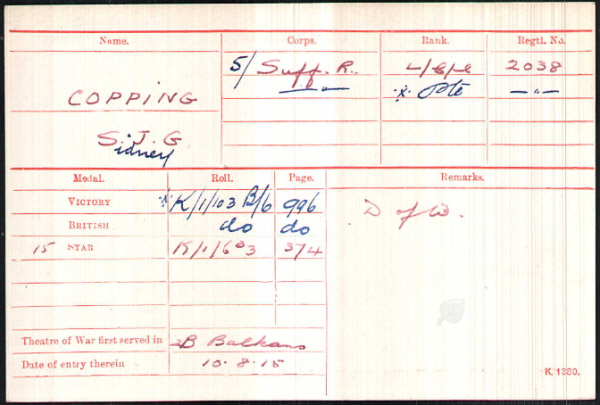 Name. Corps. Rank. Regtl. No.
5/ Suff. R. L/Cpl 2038
COPPING " * Pte —"—
S.J.G
idney
Medal. Roll. Page. Remarks.
VICTORY * K/1/103 B/6 996
D of W.
BRITISH do do
15 STAR K/1/6 3 374
Theatre of War first served in 2B Balkans
Date of entry therein 10.8.15
K. 1380.